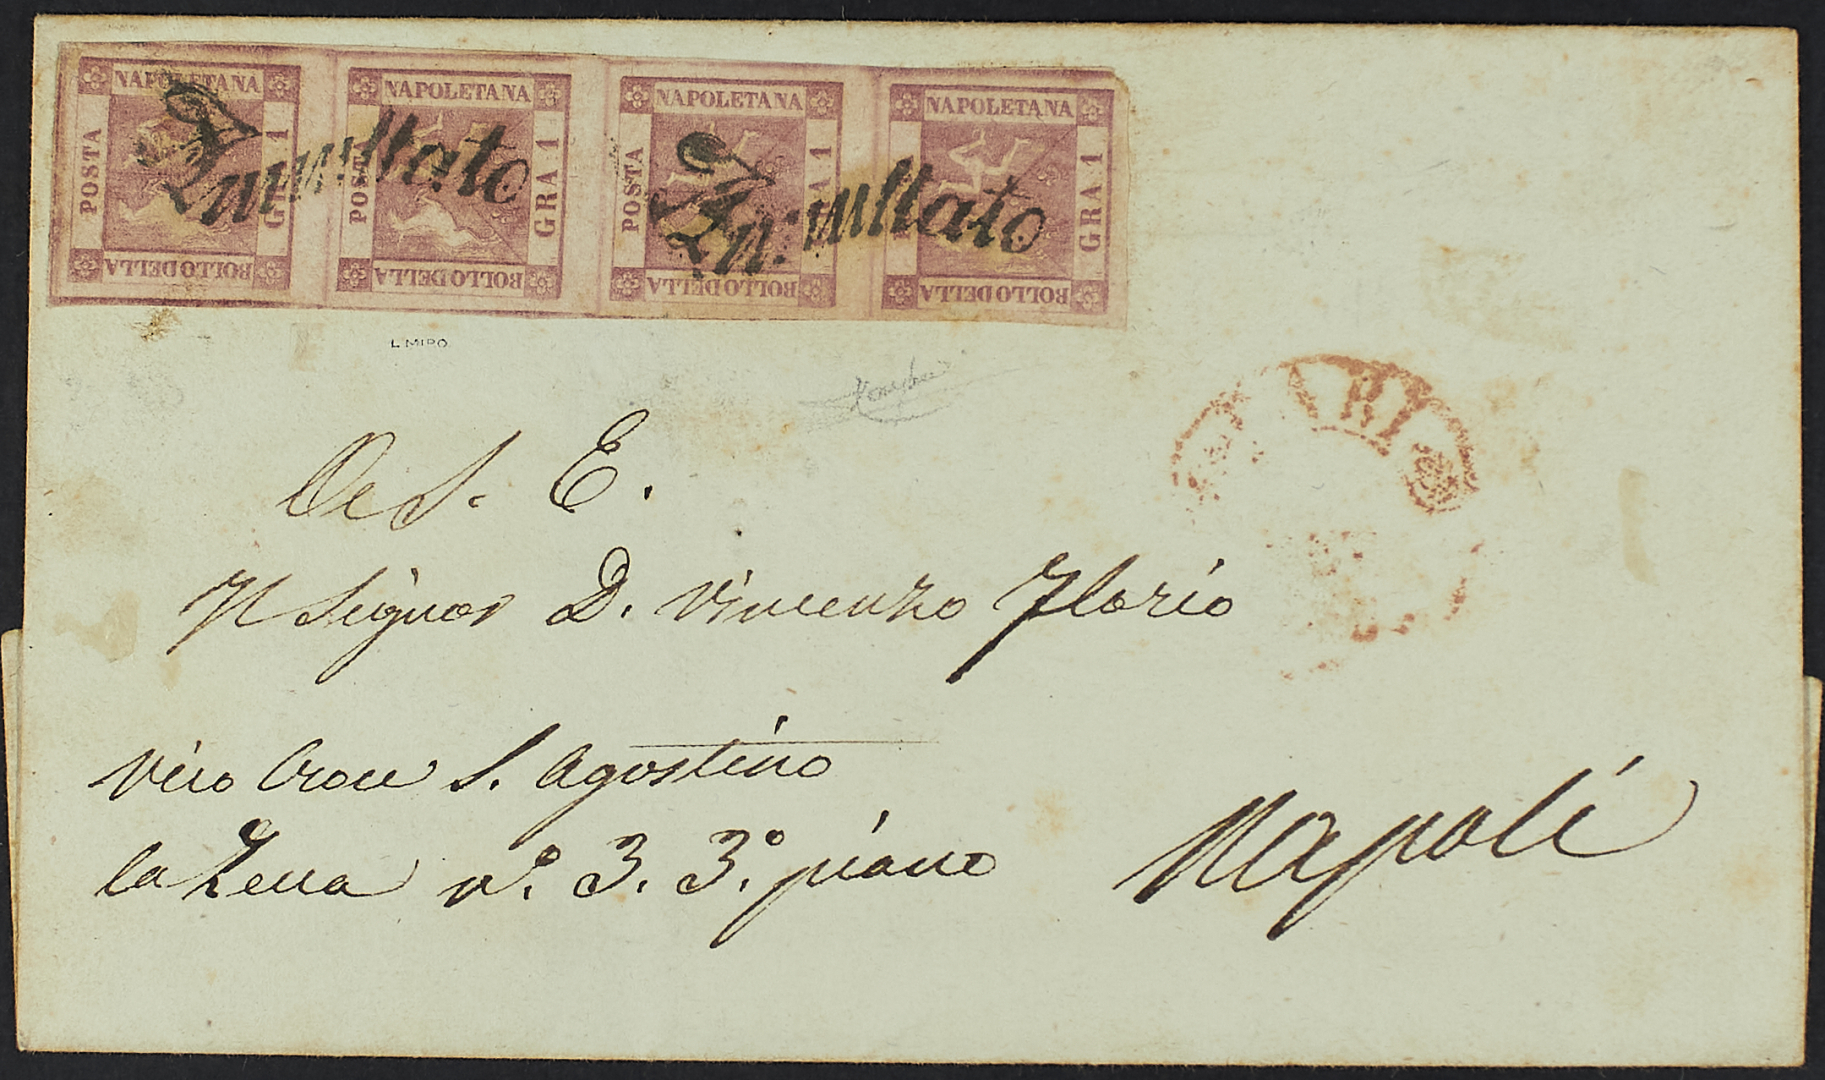 NAPOLETANA NAPOLETANA NAPOLETANA NAPOLETANA
POSTA GRA 1 POSTA GRA 1 POSTA GRA 1 GRA 1
BOLLO DELLA BOLLO DELLA BOLLO DELLA BOLLO DELLA
Annullato Annullato
L. MIRO
BARI
S. E.
Il Signor D. Vincenzo Florio
Vico Croce S. Agostino
la Zecca n.º 3. 3.º piano
Napoli